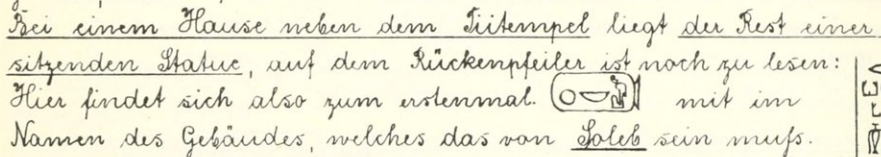 Bei einem Hause neben dem Tiitempel liegt der Rest einer
sitzenden Statue, auf dem Rückenpfeiler ist noch zu lesen:
Hier findet sich also zum erstenmal. mit im
Namen des Gebäudes, welches das von Soleb sein muſs.